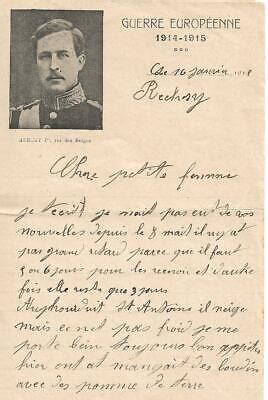 GUERRE EUROPÉENNE
1914-1915
Le 16 janvier
ALBERT Ier, roi des Belges
Chere petite femme
je t'ecrit je nait pas eut de vos
nouvelles depuis le 8 mait il ny at
pas grand retard parce que il faut
5 ou 6 jours pour les recevoir et d'autre
fois elle reste que 3 jours
Aujhourduit St Antoine il neige
mais ce net pas froid je me
porte bein toujours bon appetit
hier ont at mangait des boudin
avec des pomme de terre